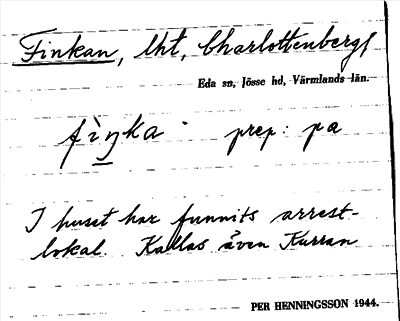 Finkan, lht, Charlottenberg,
Eda sn, Jösse hd, Värmlands län.
fìŋka prep: pa
I huset har funnits arrest-
lokal. Kallas även Kurran
PER HENNINGSSON 1944.